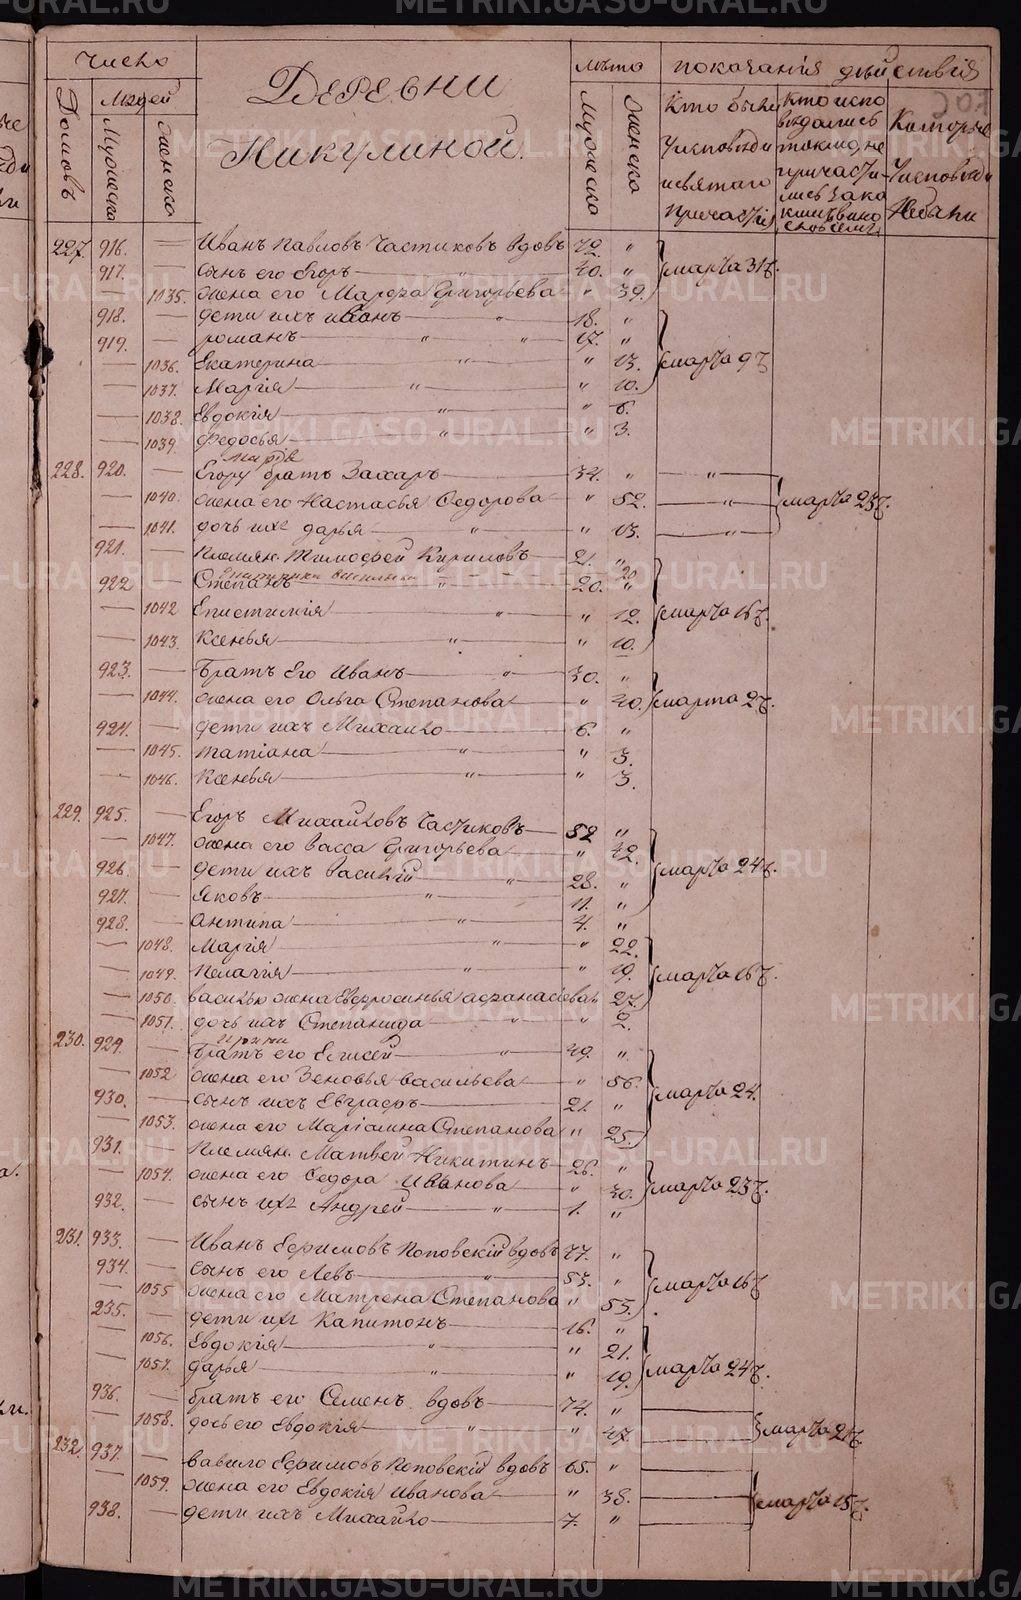 Число
Деревни
Никулиной.
лѣта
показанія дѣйствія
Домовъ
Людей
Мужеска
женска
Мужеска
Женска
Кто были У исповѣди и святаго Причастія
Кто исповѣдались токмо, не причастились
Которые У исповѣди Небыли
227. 916. — Иванъ Павловъ Частиковъ вдовъ 72. "
917. — сынъ его Егоръ — " 40. " марта 31 ч.
— 1035. жена его Марѳа Григорьева " 39.
918. — дети ихъ иванъ — " 18. "
919. — романъ — " " 17. "
— 1036. Екатерина — " " 13. марта 9 ч
— 1037. Марія — " " 10.
— 1038. Евдокія — " " 6.
— 1039. Федосья — " " 3.
228. 920. — Егору братъ Захаръ — 34. " — "
— 1040. жена его Настасья Федорова " 52. — " марта 23 ч.
— 1041. дочь ихъ дарья — " " 13. — "
921. — племян. Тимофей Кириловъ — 21. "
922 — Степанъ — " 20. "
— 1042 Епистимія — " " 12. марта 16 ч.
— 1043. Ксенья — " " 10.
923. — Братъ Его Иванъ — " 30. "
— 1044. жена его Ольга Степанова " 40. марта 2 ч.
924. — дети ихъ Михайло — 6. "
— 1045. татіана — " " 3.
— 1046. Ксенья — " " 3.
229. 925. — Егоръ Михайловъ Частиковъ — 52 "
— 1047. жена его васса Григорьева " 42.
926. — дети ихъ василій — " 28. " марта 24 ч.
927. — Яковъ — " 11. "
928. — Антипа — " 4. "
— 1048. Марія — " " 22.
— 1049. Пелагія — " " 19. марта 16 ч.
— 1050. василью жена Евфросинья афанасьева " 27.
— 1051. дочь ихъ Степанида — " " 2.
230. 929. — Братъ его Елисей — " 49. "
— 1052 жена его Зеновья васильева " 56.
930. — сынъ ихъ Евграфъ — 21. " марта 24.
— 1053. жена его Маріамна Степанова " 25.
931. — Племян. Матвей Никитинъ — 26. "
— 1054. жена его Федора Иванова " 30. марта 23 ч.
932. — сынъ ихъ Андрей — " 1. "
231. 933. — Иванъ Ефимовъ Поповскій вдовъ 77. "
934. — сынъ его Левъ — " 53. "
— 1055 жена его Матрена Степанова " 53. марта 16 ч
235. — дети ихъ Капитонъ — 16. "
— 1056. Евдокія — " " 21.
— 1057. дарья — " " 19. марта 24 ч.
936. — братъ его Семенъ вдовъ — 74. "
— 1058. дочь его Евдокія — " " 47. марта 21 ч
232. 937. — вавило Ефимовъ Поповскій вдовъ 65. "
— 1059. жена его Евдокія Иванова " 38. марта 15 ч.
938. — дети ихъ Михайло — 7. "
METRIKI.GASO-URAL.RU